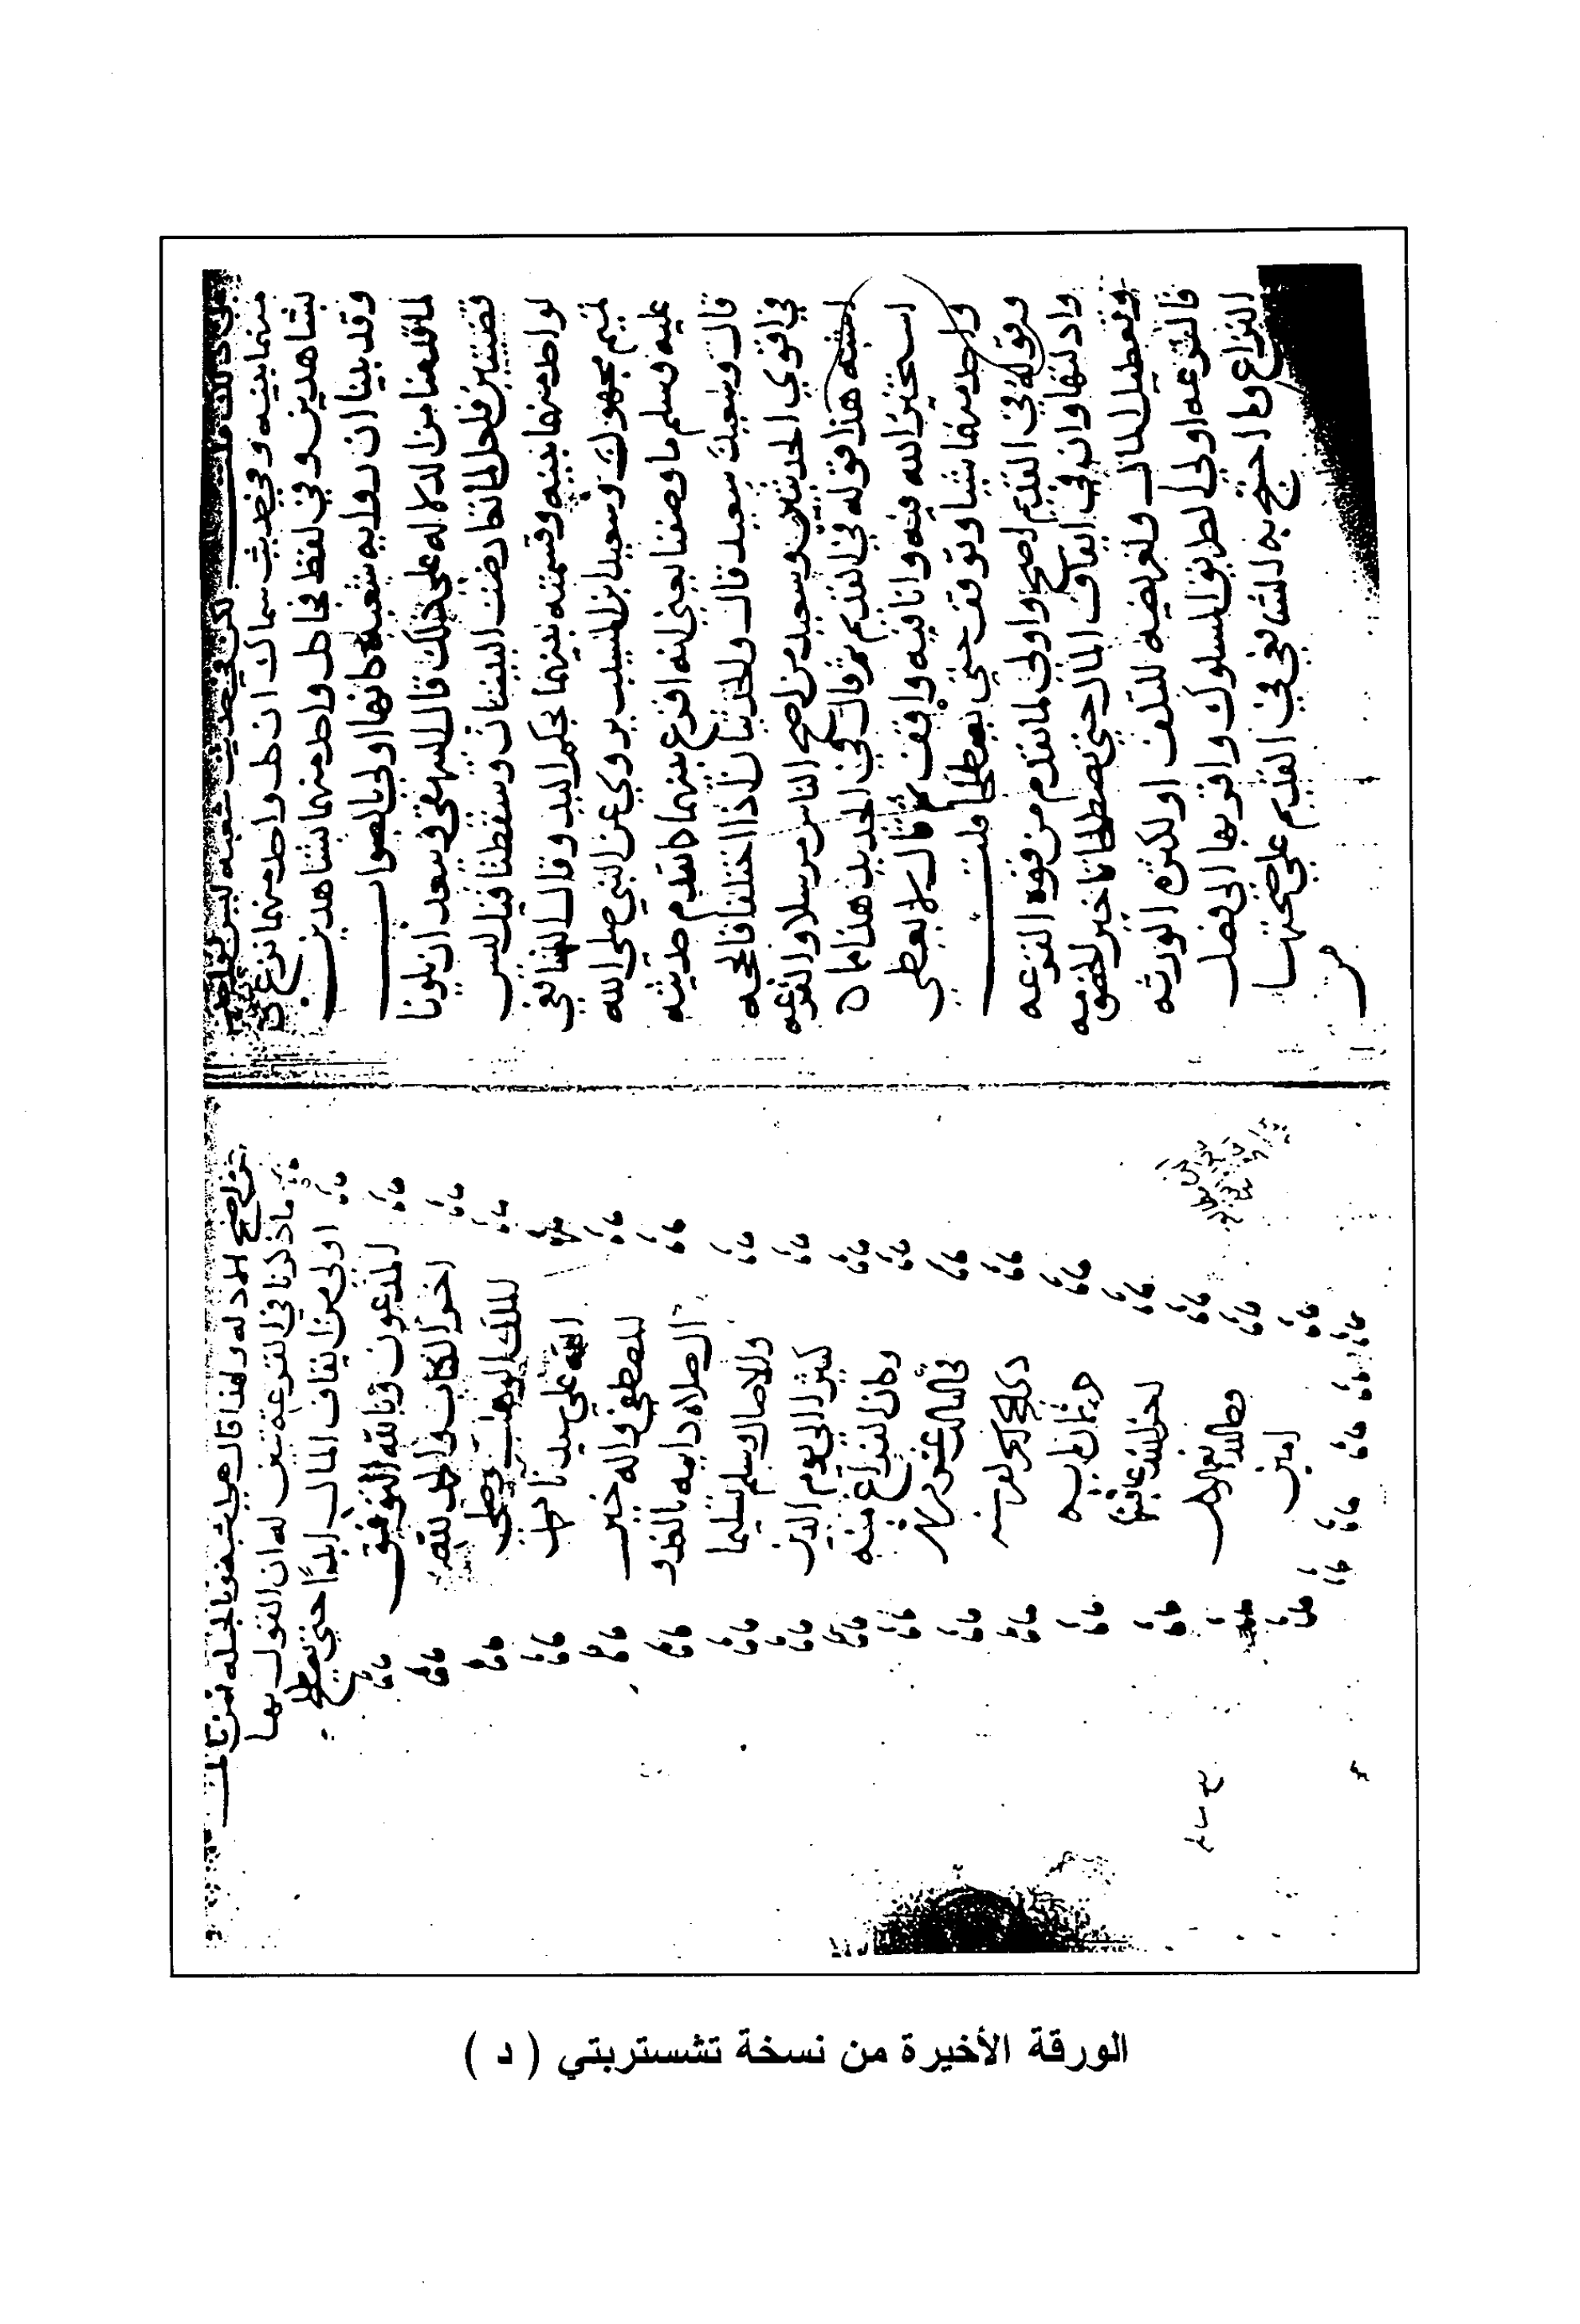 منهما بينه وفي حديث سماك ان كل واحد منهما نزع
بشاهدين وفي لفظ فجا كل واحد منهما بشاهدين
وقد بينا ان رواية شعبة كانها اولي بالصواب
لما معنا من الدلاله على ذلك قال البيهقي وبعد ان يكونا
قضيتين فلعل لما تعارضت البينتان وسقطتا قيل ليس
لواحد منهما بينه وقسمته بينهما بحكم اليد وقال الشافعي
تميم مجهول وسعيد ابن المسيب يروي عن النبي صلى الله
عليه وسلم ما وصفنا يعني انه اقرع بينهما كما تقدم حديثه
قال وسعيد سعيد قال والحديثان اذا اختلفا فالحجه
في اقوي الحديثين وسعيد من اصح الناس مرسلا والقرعه
اشبه هذا قوله في القديم ثم قال في الجديد هذا مما
استخير الله فيه وانا فيه واقف ثم قال لا يعطي
واحد منهما شيا وتوقف حتي يصطلحا قلت
وقوله في القديم اصح واولي لما تقدم من قوه القرعه
وادلتها وان في ايقاف المال حتي يصطلحا تاخير الخصومه
وتعطيل المال وتعريضه للتلف او لكثره الورثه
فالقرعه اولي الطريق المسلوك واقربها الى فصل
النزاع وما احتج به الشافعي في القديم علي صحتها
من
من اصح الادله ولهذا قال هي اشبه وبالجمله فمن تامل
ما ذكرنا في القرعة تبين له ان القول بها
اولي من ايقاف المال ابدًا حتي يصطلح
المدعون وبالله التوفيق
اخر الكتاب والحمد لله
الملك الوهاب وصلى
الله علي سيدنا محمد
المصطفي واله خير
الصلاه دايمه بالغدو
والاصال وسلم تسليما
كثيرا الى يوم الدين
وكان الفراغ منه
امين
الورقة الأخيرة من نسخة تشستربتي ( د )